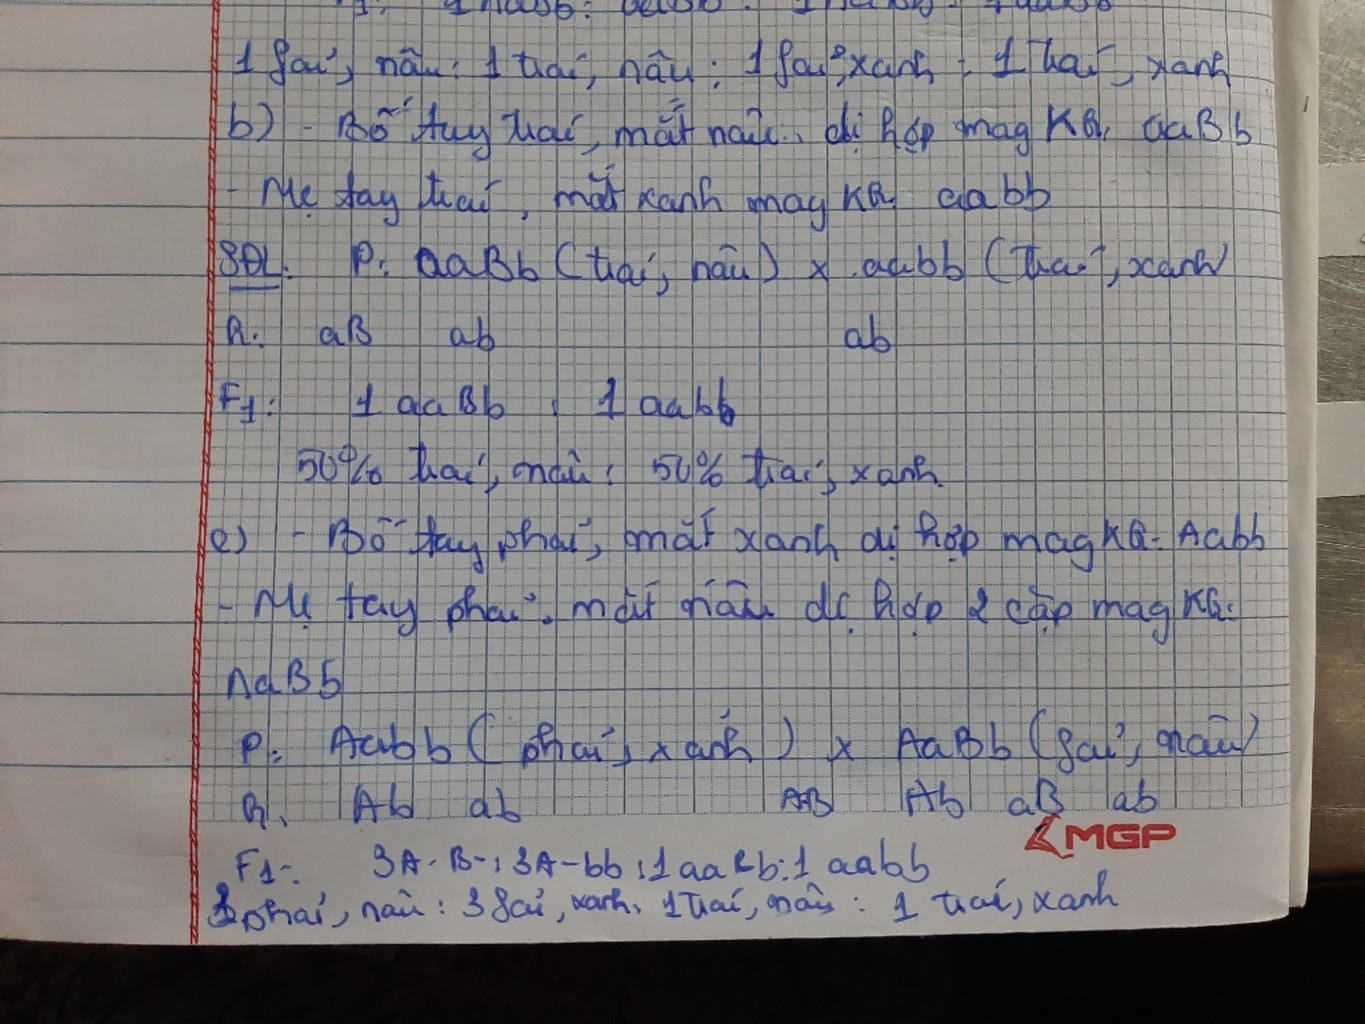 1 fải, nâu : 1 trái, nâu : 1 fải, xanh : 1 trái, xanh
b) - Bố tay trái, mắt nâu, dị hợp mag KG. aaBb
- Mẹ tay trái, mắt xanh mag KG aabb
SĐL: P: aaBb (trái, nâu) x aabb (trái, xanh)
G: aB ab ab
F1: 1 aaBb : 1 aabb
50% trái, nâu : 50% trái, xanh.
c) - Bố tay phải, mắt xanh dị hợp mag KG: Aabb
- Mẹ tay phải, mắt nâu dị hợp 2 cặp mag KG:
AaBb
P: Aabb (phải, xanh) x AaBb (fải, nâu)
G: Ab ab AB Ab aB ab
MGP
F1: 3A-B- : 3A-bb : 1 aaBb : 1 aabb
3 phải, nâu : 3 fải, xanh, 1 trái, nâu : 1 trái, xanh